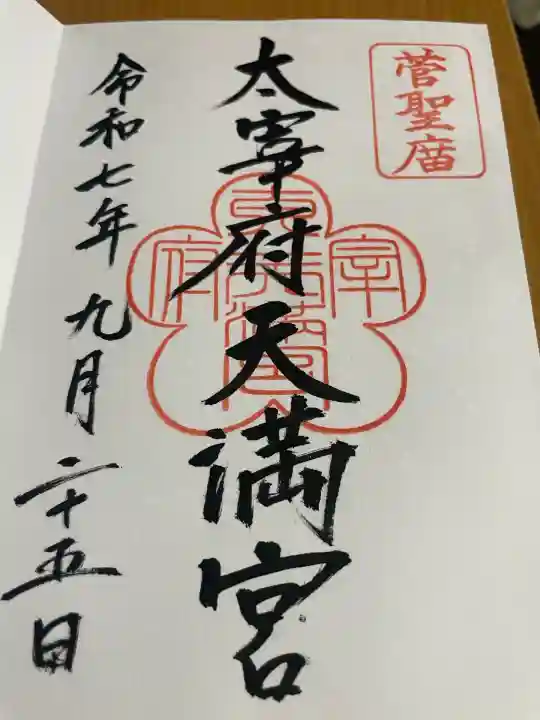 菅聖庿
太宰府天満宮
令和七年九月二十五日